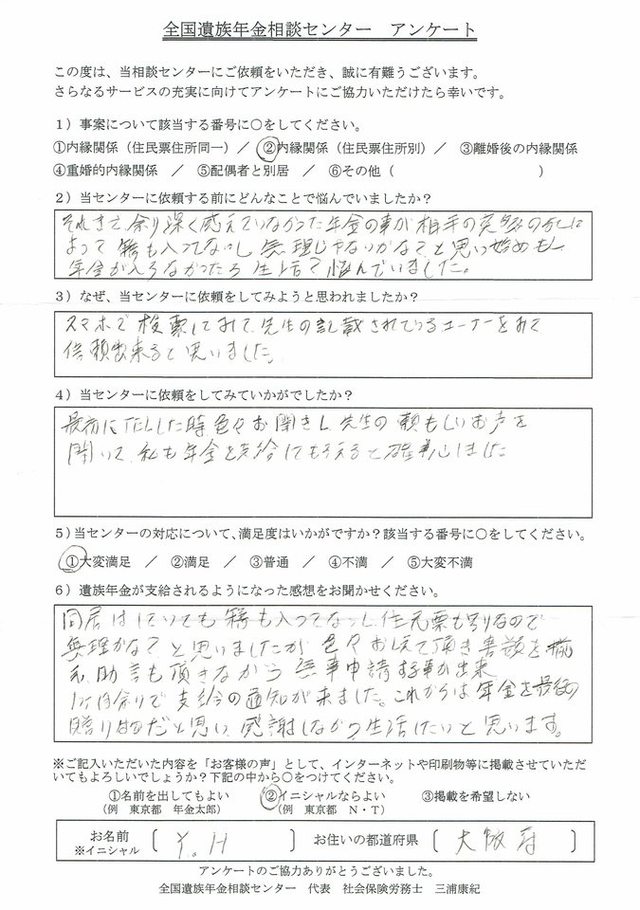 全国遺族年金相談センター　アンケート
この度は、当相談センターにご依頼をいただき、誠に有難うございます。
さらなるサービスの充実に向けてアンケートにご協力いただけたら幸いです。
1）事案について該当する番号に○をしてください。
①内縁関係（住民票住所同一）／　②内縁関係（住民票住所別）／　③離婚後の内縁関係
④重婚的内縁関係　／　⑤配偶者と別居　／　⑥その他（　　　　　　　　　　）
2）当センターに依頼する前にどんなことで悩んでいましたか？
それまで余り深く考えていなかった年金の事が相手の
よって籍も入ってないし無理じゃないかな？と思い始めも
年金が入らなかったら生活？悩んでいました。
3）なぜ、当センターに依頼をしてみようと思われましたか？
スマホで検索してみて、先生の記載されているコーナーをみて
信頼出来ると思いました。
4）当センターに依頼をしてみていかがでしたか？
最初にTELした時色々お聞きし先生の頼もしいお声を
聞いて、私も年金を支給してもらえると確信しました
5）当センターの対応について、満足度はいかがですか？該当する番号に○をしてください。
①大変満足　／　②満足　／　③普通　／　④不満　／　⑤大変不満
6）遺族年金が支給されるようになった感想をお聞かせください。
同居はしていても籍も入ってないし住民票も別なので
無理かな？と思いましたが色々おしえて頂き書類を揃
え助言も頂きながら無事申請する事が出来
1ヶ月余りで支給の通知が来ました。これからは年金を最後の
贈り物だと思い、感謝しながら生活したいと思います。
※ご記入いただいた内容を「お客様の声」として、インターネットや印刷物等に掲載させていただ
いてもよろしいでしょうか？下記の中から○をつけてください。
①名前を出してもよい　②イニシャルならよい　③掲載を希望しない
（例　東京都　年金太郎）　（例　東京都　N・T）
お名前　〔　Y.H　〕　お住いの都道府県　〔　大阪府　〕
※イニシャル
アンケートのご協力ありがとうございました。
全国遺族年金相談センター　代表　社会保険労務士　三浦康紀